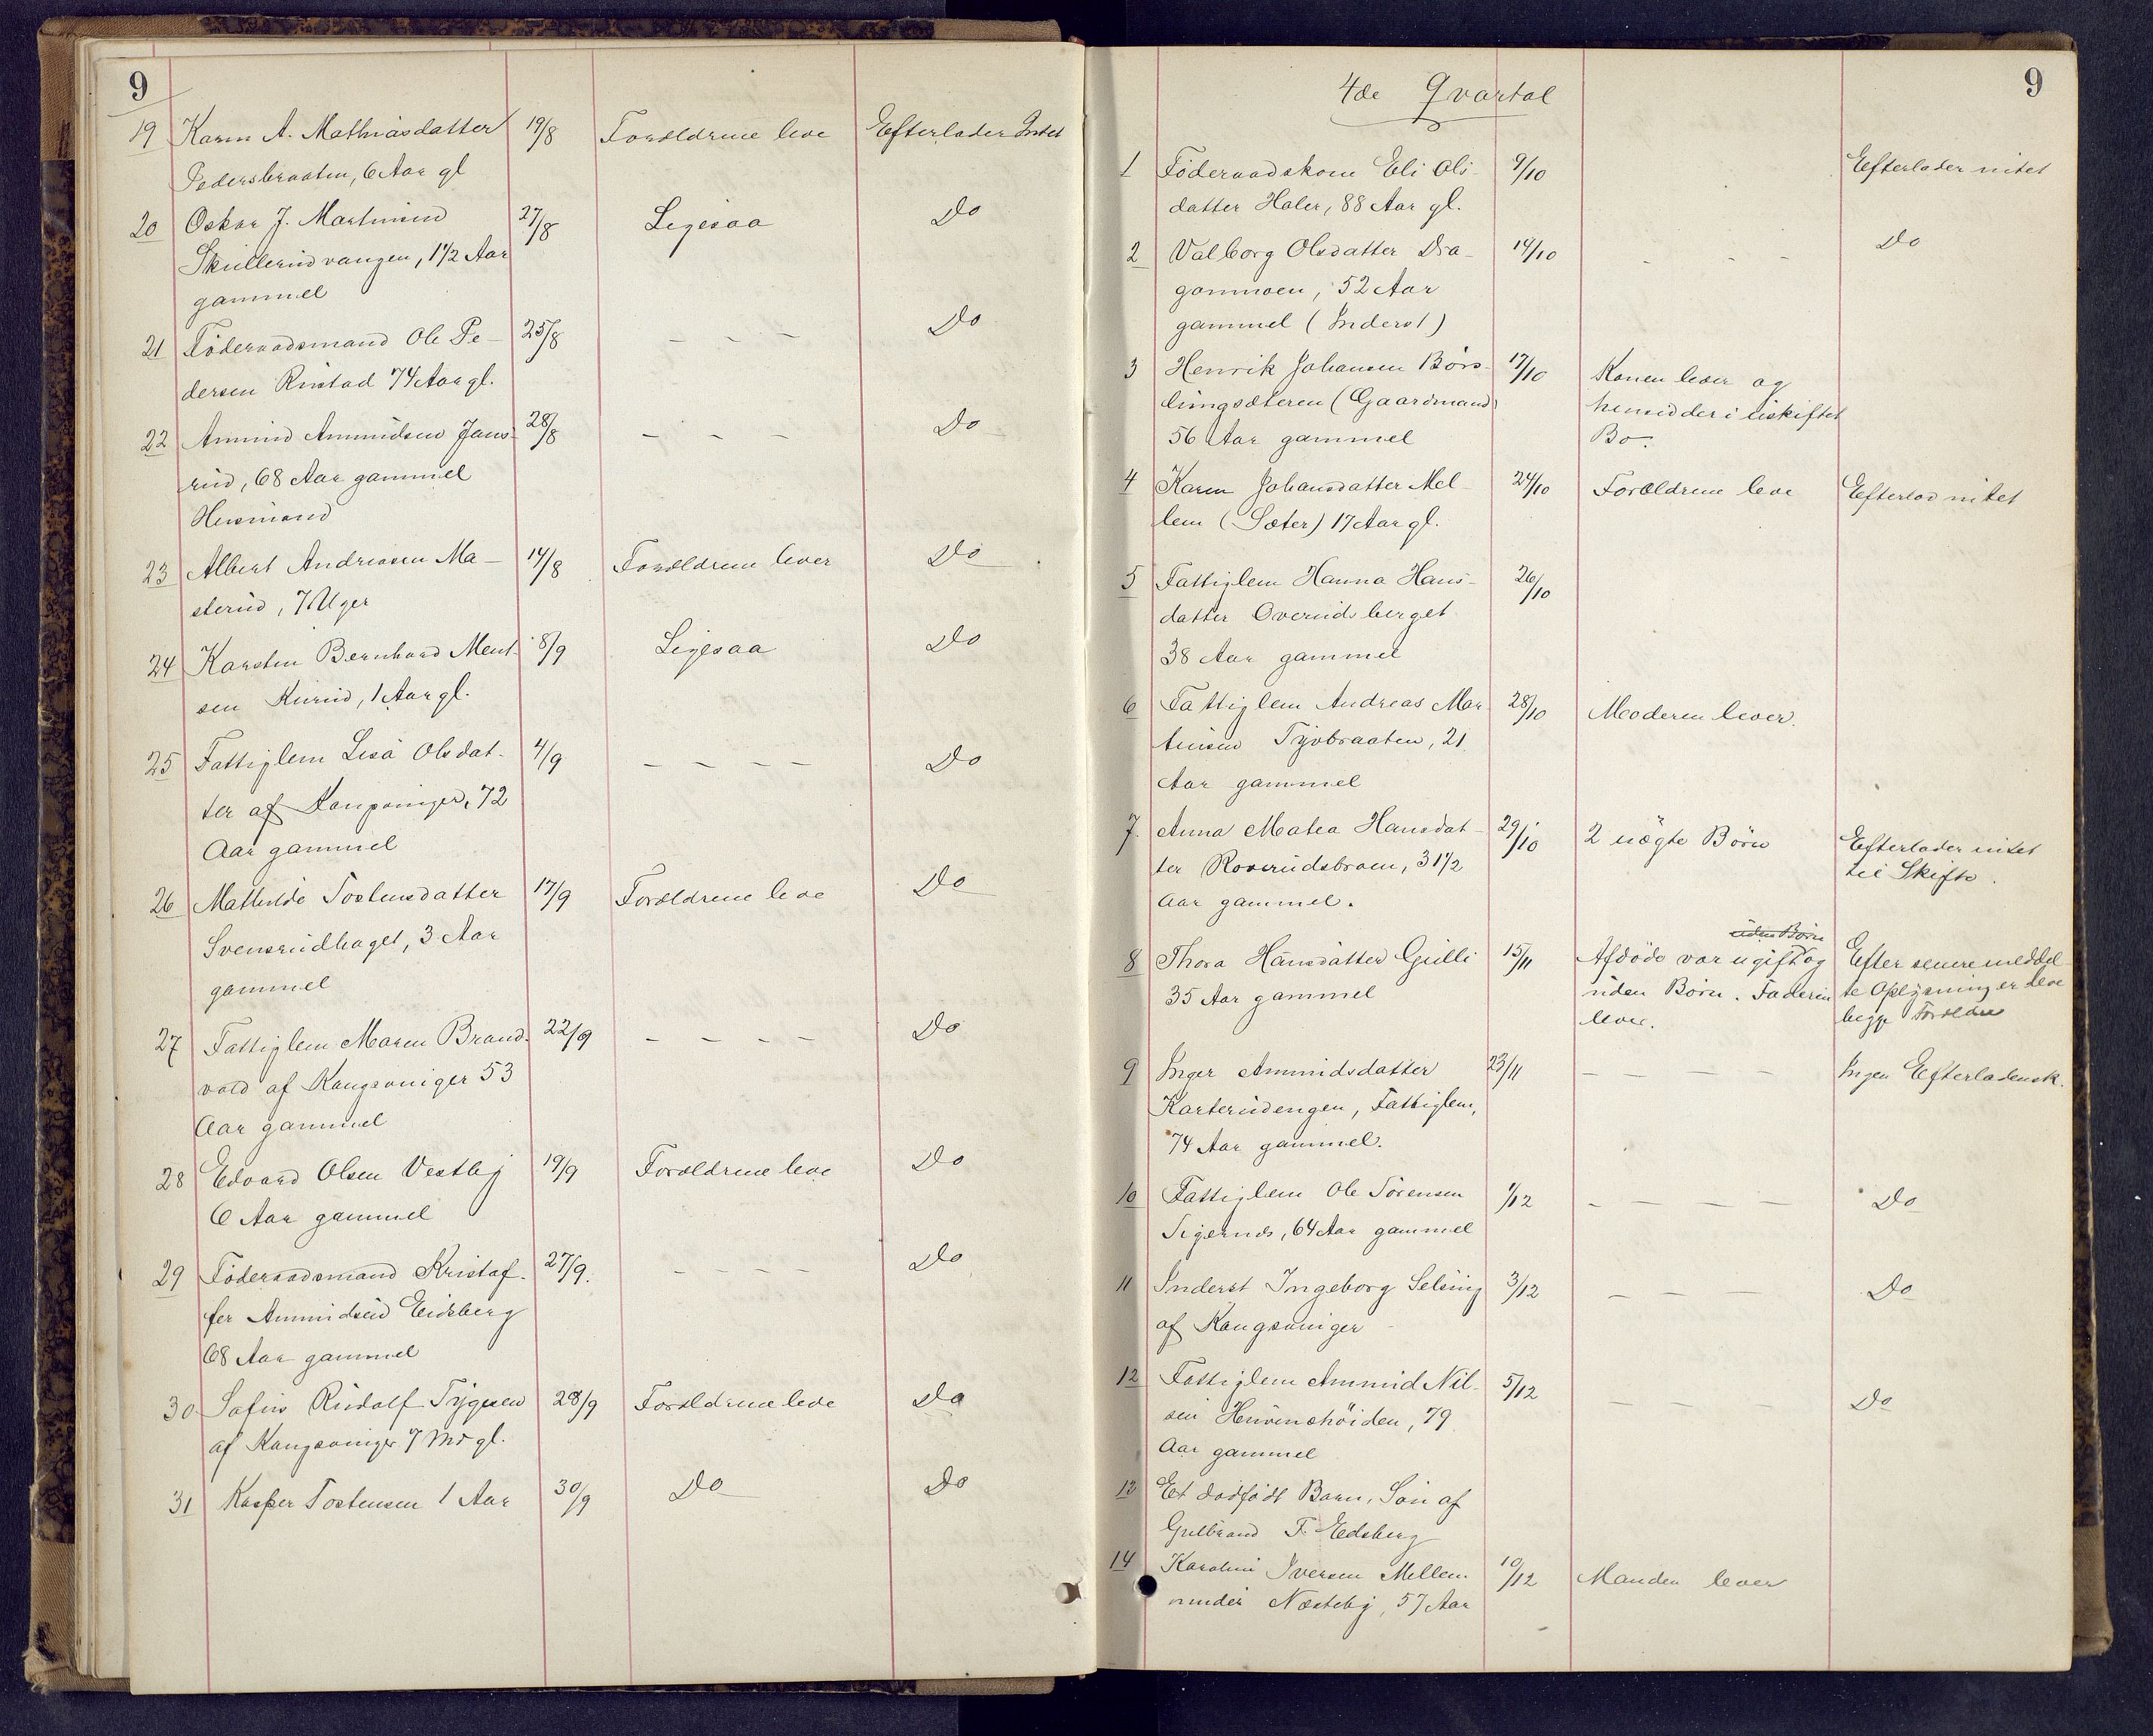 9
19 Karen A. Mathiasdatter 19/8 Forældrene leve Efterlader Intet
Pedersbraaten, 6 Aar gl
20 Oskar J. Martinsen 27/8 Ligesaa Do
Skullerudvangen, 1 1/2 Aar
gammel
21 Föderaadsmand Ole Pe- 25/8 - - - Do
dersen Rustad 74 Aar gl.
22 Amund Amundsen Jans- 28/8 - - - Do
rud, 68 Aar gammel
Husmand
23 Albert Andreasen Ma- 14/8 Forældrene lever Do
sterud, 7 Uger
24 Karsten Bernhard Ment- 8/9 Ligesaa Do
sen Kurud, 1 Aar gl.
25 Fattiglem Lisa Olsdat- 4/9 - - - - Do
ter af Kongsvinger, 72
Aar gammel
26 Mathilde Tostensdatter 17/9 Forældrene leve Do
Svensrudhaget, 3 Aar
gammel
27 Fattiglem Maren Brand- 22/9 - - - - Do
vold af Kongsvinger 53
Aar gammel
28 Edvard Olsen Vestby 19/9 Forældrene leve Do
6 Aar gammel
29 Föderaadsmand Kristof- 27/9. - - - - Do
fer Amundsen Eidsberg
68 Aar gammel
30 Rudolf 28/9 Forældrene leve Do
af Kongsvinger 7 Md gl.
31 Kasper Tostensen 1 Aar 30/9 Do Do
9
4de Qvartal
1 Föderaadskone Eli Ols- 9/10 Efterlader intet
datter Holer, 88 Aar gl.
2 Valborg Olsdatter Dra- 14/10 - - - Do
gonmoen, 52 Aar
gammel (Inderst)
3 Henrik Johansen Börs- 17/10 Konen lever og
lungsæteren (Gaardmand) hensidder i uskiftet
56 Aar gammel Bo.
4 Karen Johansdatter Mel- 24/10 Forældrene leve Efterlod intet
lem (Sæter) 17 Aar gl.
5 Fattiglem Hanna Hans- 26/10
datter Overudsberget
38 Aar gammel
6 Fattiglem Andreas Mar- 28/10 Moderen lever.
tinsen Tyvbraaten, 21
Aar gammel
7. Anna Mathea Hansdat- 29/10 2 uægte Börn Efterlader intet
ter Roverudsbroen, 31 1/2 til Skifte.
Aar gammel.
uden Börn
8 Thora Hansdatter Gulli 15/11 Afdöde var ugift og Efter senere meddel-
35 Aar gammel uden Börn. Faderen te Oplysninger leve
lever. begge Forældre
9 Inger Amundsdatter 23/11 - - - - Ingen Efterladensk.
Karterudengen, Fattiglem,
74 Aar gammel.
10 Fattiglem Ole Sörensen 1/12 - - - - Do
Sigernes, 64 Aar gammel
11 Inderst Ingeborg Selsing 3/12 - - - Do
af Kongsvinger
12 Fattiglem Ammund Nil- 5/12 - - - Do
sen Hensenhöiden, 79
Aar gammel
13 Et dödfödt Barn, Sön af
Gulbrand F. Edsberg
14 Karoline Iversen Mellem 10/12 Manden lever
under Næsteby, 57 Aar